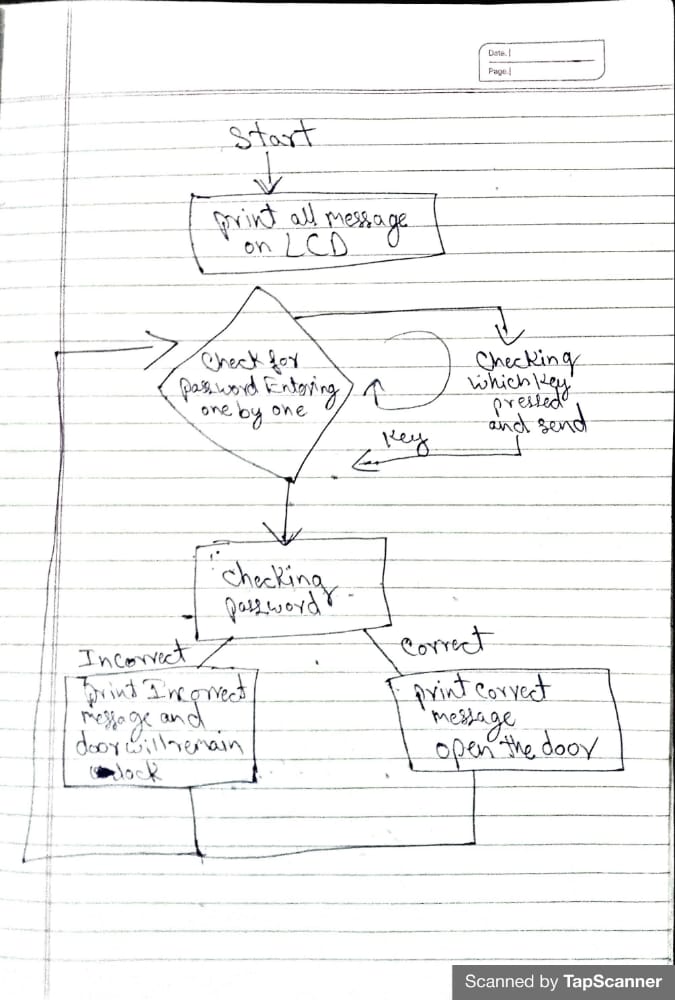 Date.
Page.
Start
print all message
on LCD
Check for
password Entering
one by one
Checking
which key
pressed
and send
Key
Checking
password
Incorrect
Correct
print Incorrect
message and
door will remain
lock
print correct
message
open the door
Scanned by TapScanner